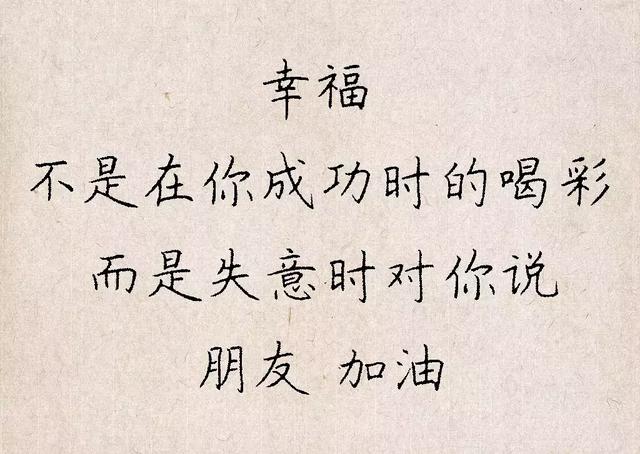 幸福
不是在你成功时的喝彩
而是失意时对你说
朋友 加油